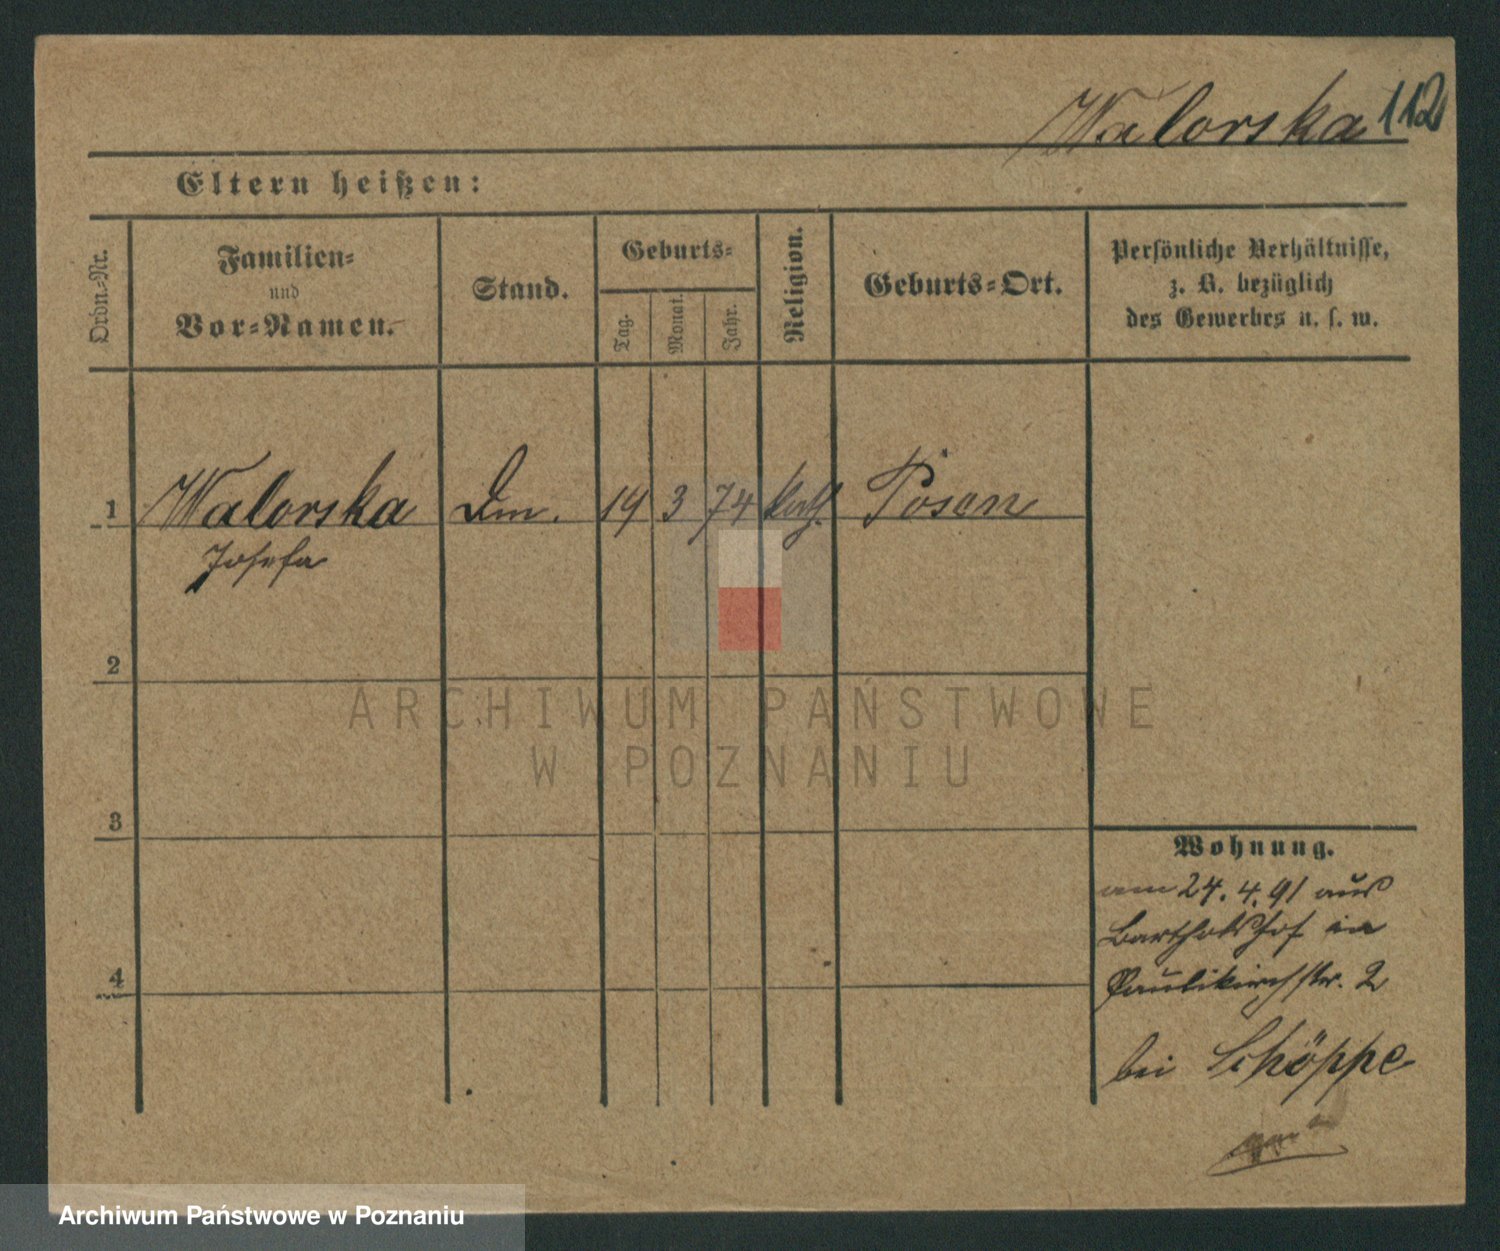 Walorska 112
Eltern heißen:
Ordn.-Nr.
Familien-
und
Vor-Namen.
Stand.
Geburts-
Tag.
Monat.
Jahr.
Religion.
Geburts-Ort.
Persönliche Verhältnisse,
z. B. bezüglich
des Gewerbes u. s. w.
1 Walorska Dm. 19 3 74 kath. Posen
Josefa
2
3
4
Wohnung.
am 24. 4. 91 aus
Bartholdshof in
Paulikirchstr. 2
bei Schöppe
ARCHIWUM PAŃSTWOWE
W POZNANIU
Archiwum Państwowe w Poznaniu